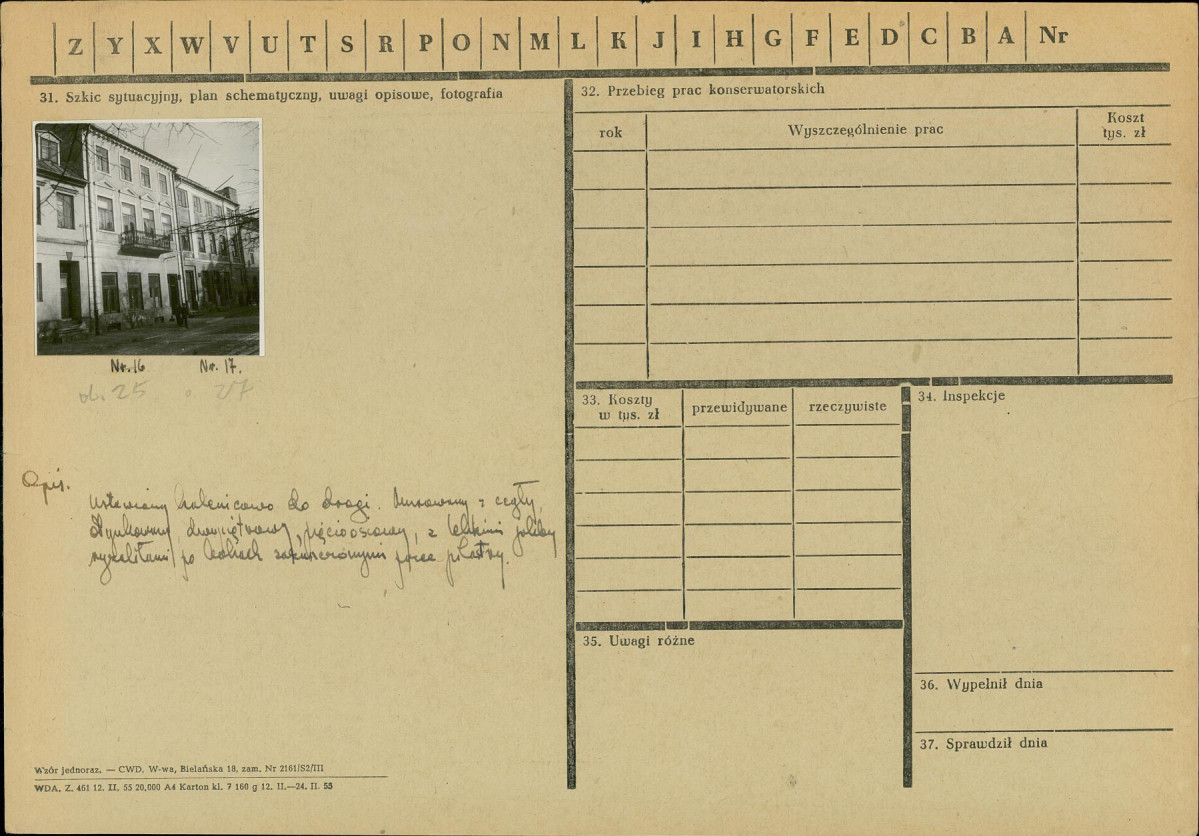 Z Y X W V U T S R P O N M L K J I H G F E D C B A Nr
31. Szkic sytuacyjny, plan schematyczny, uwagi opisowe, fotografia
Nr. 16 Nr. 17.
ob. 25 27
Opis.
Ustawiony kalenicowo do drogi. Murowany z cegły,
Otynkowany, dwupiętrowy, pięcioosiowy, z
ryzalitami po bokach przez pilastry.
Wzór jednoraz. — CWD, W-wa, Bielańska 18, zam. Nr 2161/S2/III
WDA. Z. 461 12. II. 55 20.000 A4 Karton kl. 7 160 g 12. II.—24. II. 55
32. Przebieg prac konserwatorskich
rok Wyszczególnienie prac Koszt
tys. zł
33. Koszty
w tys. zł
przewidywane rzeczywiste
34. Inspekcje
35. Uwagi różne
36. Wypełnił dnia
37. Sprawdził dnia